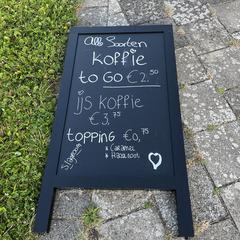 Alle Soorten
koffie
to Go €2.50
ijs koffie
€3,75
topping €0,75
slagroom
* Caramel
* Hazelnoot